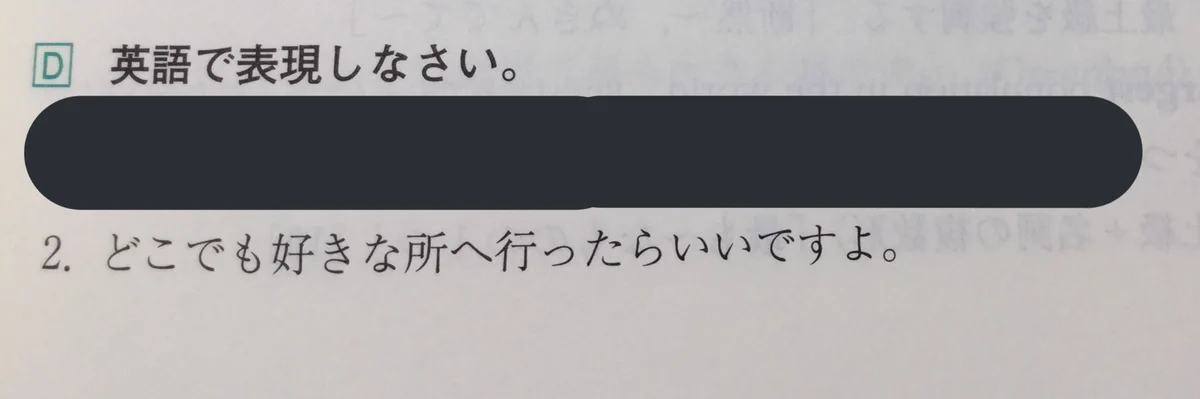 D 英語で表現しなさい。
2. どこでも好きな所へ行ったらいいですよ。